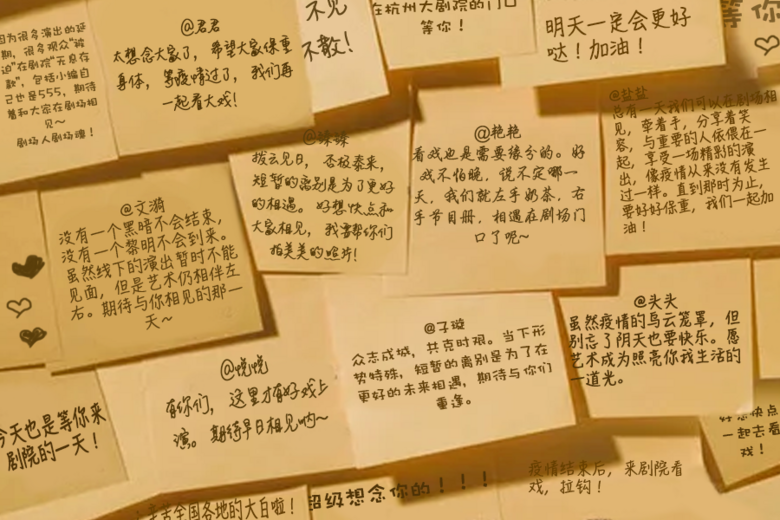 因为很多演出的延
期，很多观众"被
迫"在剧院"无息存
款"，包括小编自
己也是555，期待
着和大家在剧场相
见~
剧场人剧场魂！
@君君
太想念大家了，希望大家保重
身体，等疫情过了，我们再
一起看大戏！
不见
不散！
在杭州大剧院的门口
等你！
明天一定会更好
哒！加油！
等你
@文漪
没有一个黑暗不会结束，
没有一个黎明不会到来。
虽然线下的演出暂时不能
见面，但是艺术仍相伴左
右。期待与你相见的那一
天~
拨云见日，否极泰来，
短暂的离别是为了更好
的相遇。好想快点和
大家相见，我要帮你们
拍美美的照片！
@艳艳
看戏也是需要缘分的。好
戏不怕晚，说不定哪一
天，我们就左手奶茶，右
手节目册，相遇在剧场门
口了呢~
@盐盐
总有一天我们可以在剧场相
见，牵着手，分享着笑
容，与重要的人依偎在一
起，享受一场精彩的演
出，像疫情从来没有发生
过一样。直到那时为止，
要好好保重，我们一起加
油！
今天也是等你来
剧院的一天！
@悦悦
有你们，这里才有好戏上
演。期待早日相见呐~
@子璇
众志成城，共克时艰。当下形
势特殊，短暂的离别是为了在
更好的未来相遇，期待与你们
重逢。
@头头
虽然疫情的乌云笼罩，但
别忘了阴天也要快乐。愿
艺术成为照亮你我生活的
一道光。
好想快点
一起去看
戏！
辛苦全国各地的大白啦！
超级想念你的！！！
疫情结束后，来剧院看
戏，拉钩！